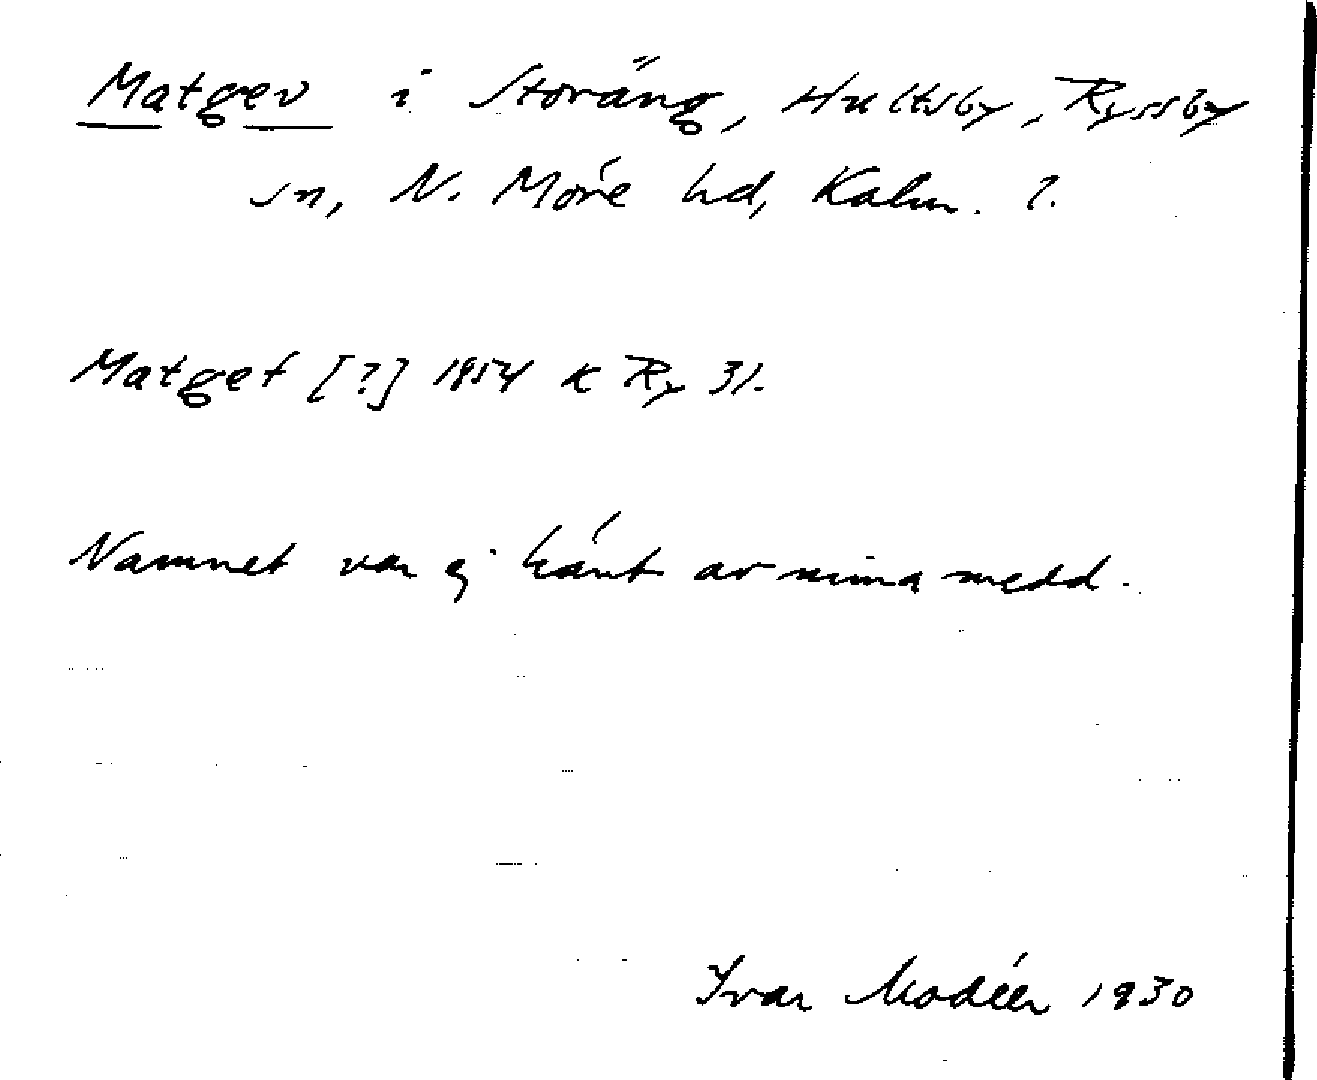 Matgev i Storäng, Hultsby, Ryssby
sn, N. Möre hd, Kalm. l.
Matget [?] 1854 K Ry 31.
Namnet var ej känt av mina medd.
Ivar Modéer 1930